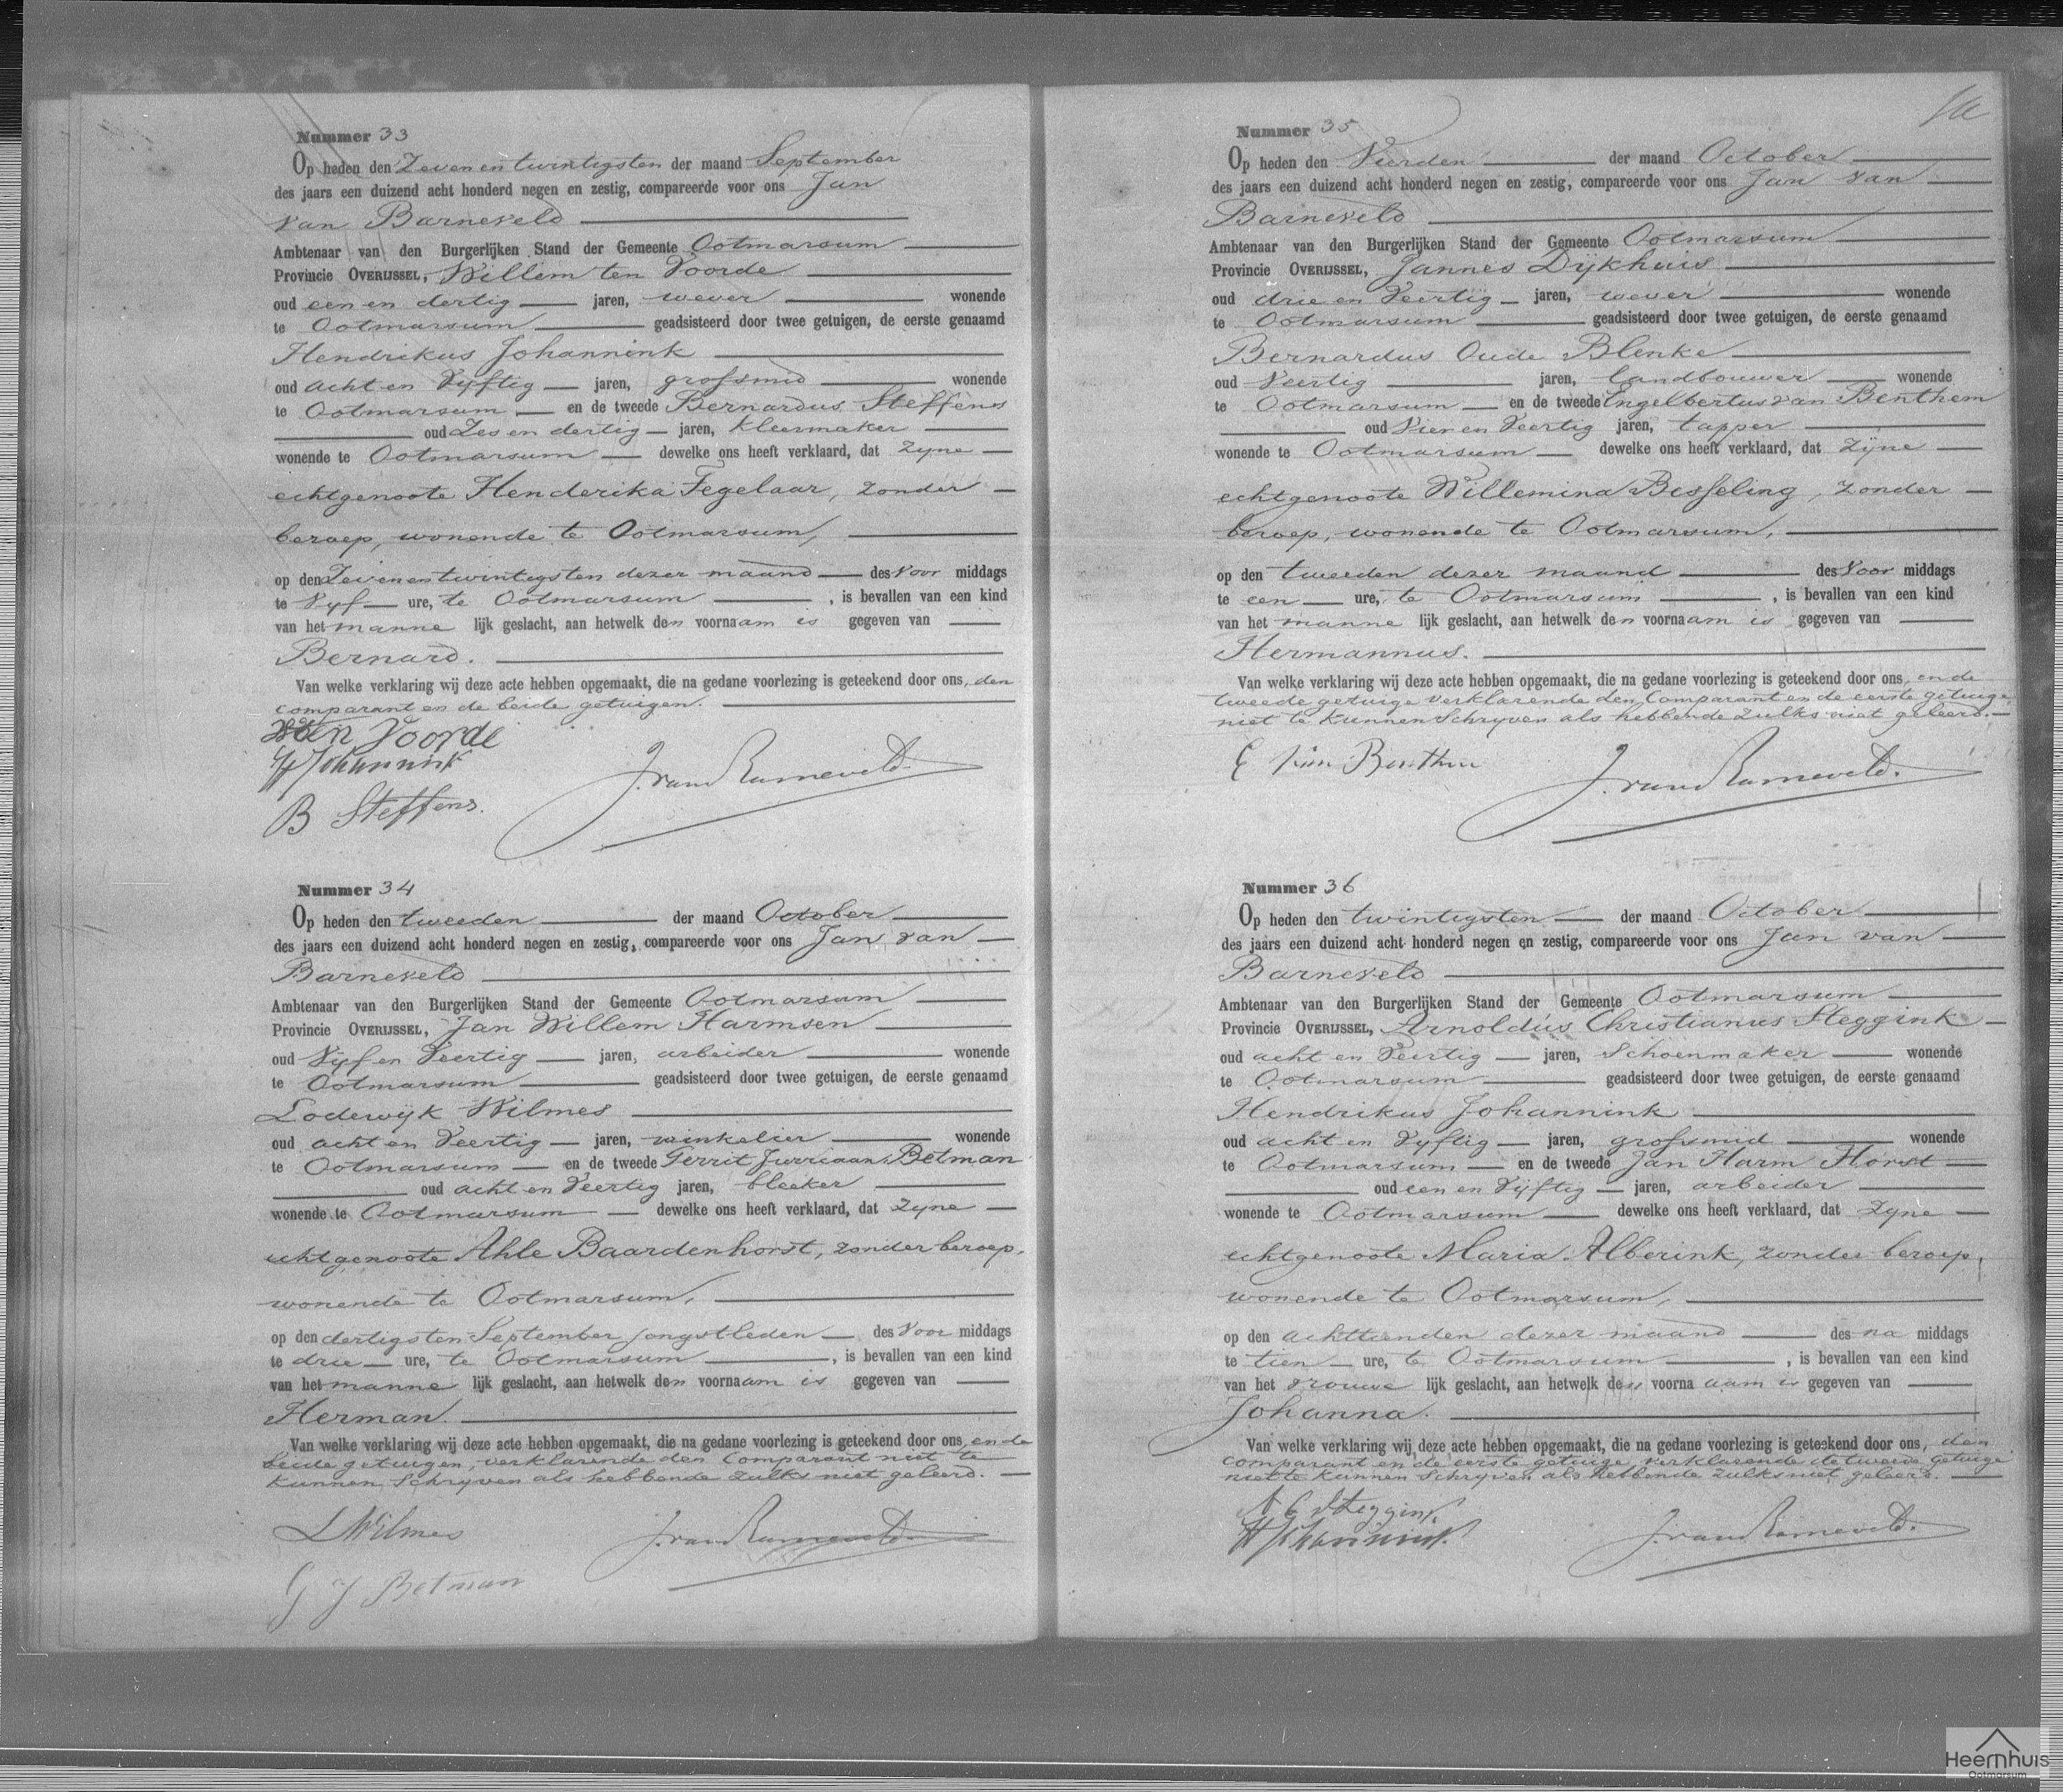 Nummer 33
Op heden den Zeven en twintigsten der maand September
des jaars een duizend acht honderd negen en zestig, compareerde voor ons Jan
van Barneveld
Ambtenaar van den Burgerlijken Stand der Gemeente Ootmarsum
Provincie OVERIJSSEL, Willem ten Voorde
oud een en dertig jaren, wever wonende
te Ootmarsum geadsisteerd door twee getuigen, de eerste genaamd
Hendrikus Johannink
oud acht en Vyftig jaren, grofsmid wonende
te Ootmarsum en de tweede Bernardus Steffens
oud Zes en dertig jaren, kleermaker
wonende te Ootmarsum dewelke ons heeft verklaard, dat Zyne
echtgenoote Henderika Fegelaar, zonder
beroep, wonende te Ootmarsum,
op den Zeven en twintigsten dezer maand des Voor middags
te Vyf ure, te Ootmarsum, is bevallen van een kind
van het manne lijk geslacht, aan hetwelk den voornaam is gegeven van
Bernard.
Van welke verklaring wij deze acte hebben opgemaakt, die na gedane voorlezing is geteekend door ons, den
comparant en de beide getuigen.
ten Voorde
H Johannink
B Steffens.
J. van Barneveld.
Nummer 34
Op heden den tweeden der maand October
des jaars een duizend acht honderd negen en zestig, compareerde voor ons Jan van
Barneveld
Ambtenaar van den Burgerlijken Stand der Gemeente Ootmarsum
Provincie OVERIJSSEL, Jan Willem Harmsen
oud Vyf en Veertig jaren, arbeider wonende
te Ootmarsum geadsisteerd door twee getuigen, de eerste genaamd
Lodewyk Wilmes
oud acht en Veertig jaren, winkelier wonende
te Ootmarsum en de tweede Gerrit Jurriaan Betman
oud acht en Veertig jaren, bleeker
wonende te Ootmarsum dewelke ons heeft verklaard, dat Zyne
echtgenoote Ahle Baardenhorst, zonder beroep,
wonende te Ootmarsum,
op den dertigsten September jongstleden des Voor middags
te drie ure, te Ootmarsum, is bevallen van een kind
van het manne lijk geslacht, aan hetwelk den voornaam is gegeven van
Herman.
Van welke verklaring wij deze acte hebben opgemaakt, die na gedane voorlezing is geteekend door ons, en de
beide getuigen, verklarende den Comparant niet te
kunnen Schryven als hebbende zulks niet geleerd.
L Wilmes
G J Betman
J. van Barneveld.
Nummer 35
Op heden den Vierden der maand October
des jaars een duizend acht honderd negen en zestig, compareerde voor ons Jan van
Barneveld
Ambtenaar van den Burgerlijken Stand der Gemeente Ootmarsum
Provincie OVERIJSSEL, Jannes Dijkhuis
oud drie en Veertig jaren, wever wonende
te Ootmarsum geadsisteerd door twee getuigen, de eerste genaamd
Bernardus Oude Blenke
oud Veertig jaren, landbouwer wonende
te Ootmarsum en de tweede Engelbertus van Benthem
oud Vier en Veertig jaren, tapper
wonende te Ootmarsum dewelke ons heeft verklaard, dat zijne
echtgenoote Willemina Besseling, zonder
beroep, wonende te Ootmarsum,
op den tweeden dezer maand des Voor middags
te een ure, te Ootmarsum, is bevallen van een kind
van het manne lijk geslacht, aan hetwelk den voornaam is gegeven van
Hermannus.
Van welke verklaring wij deze acte hebben opgemaakt, die na gedane voorlezing is geteekend door ons, en de
tweede getuige verklarende den Comparant en de eerste getuige
niet te kunnen Schryven als hebbende zulks niet geleerd.
E van Benthem
J. van Barneveld.
Nummer 36
Op heden den twintigsten der maand October
des jaars een duizend acht honderd negen en zestig, compareerde voor ons Jan van
Barneveld
Ambtenaar van den Burgerlijken Stand der Gemeente Ootmarsum
Provincie OVERIJSSEL, Arnoldus Christianus Steggink
oud acht en Veertig jaren, Schoenmaker wonende
te Ootmarsum geadsisteerd door twee getuigen, de eerste genaamd
Hendrikus Johannink
oud acht en Vyftig jaren, grofsmid wonende
te Ootmarsum en de tweede Jan Harm Horst
oud een en Vijftig jaren, arbeider
wonende te Ootmarsum dewelke ons heeft verklaard, dat Zyne
echtgenoote Maria Alberink, zonder beroep,
wonende te Ootmarsum,
op den achttienden dezer maand des na middags
te tien ure, te Ootmarsum, is bevallen van een kind
van het vrouwe lijk geslacht, aan hetwelk den voorna aam is gegeven van
Johanna.
Van welke verklaring wij deze acte hebben opgemaakt, die na gedane voorlezing is geteekend door ons, den
comparant en de eerste getuige, verklarende de tweede getuige
niet te kunnen Schryven als hebbende zulks niet geleerd.
A C Steggink
H Johannink
J. van Barneveld.
Heemhuis
Ootmarsum